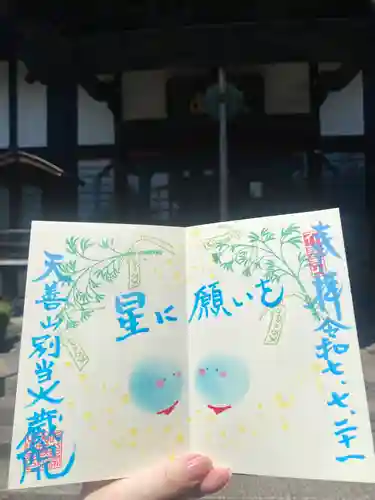 奉拝 令和七、七、二十一
星に願いを
天善山別当火蔵院